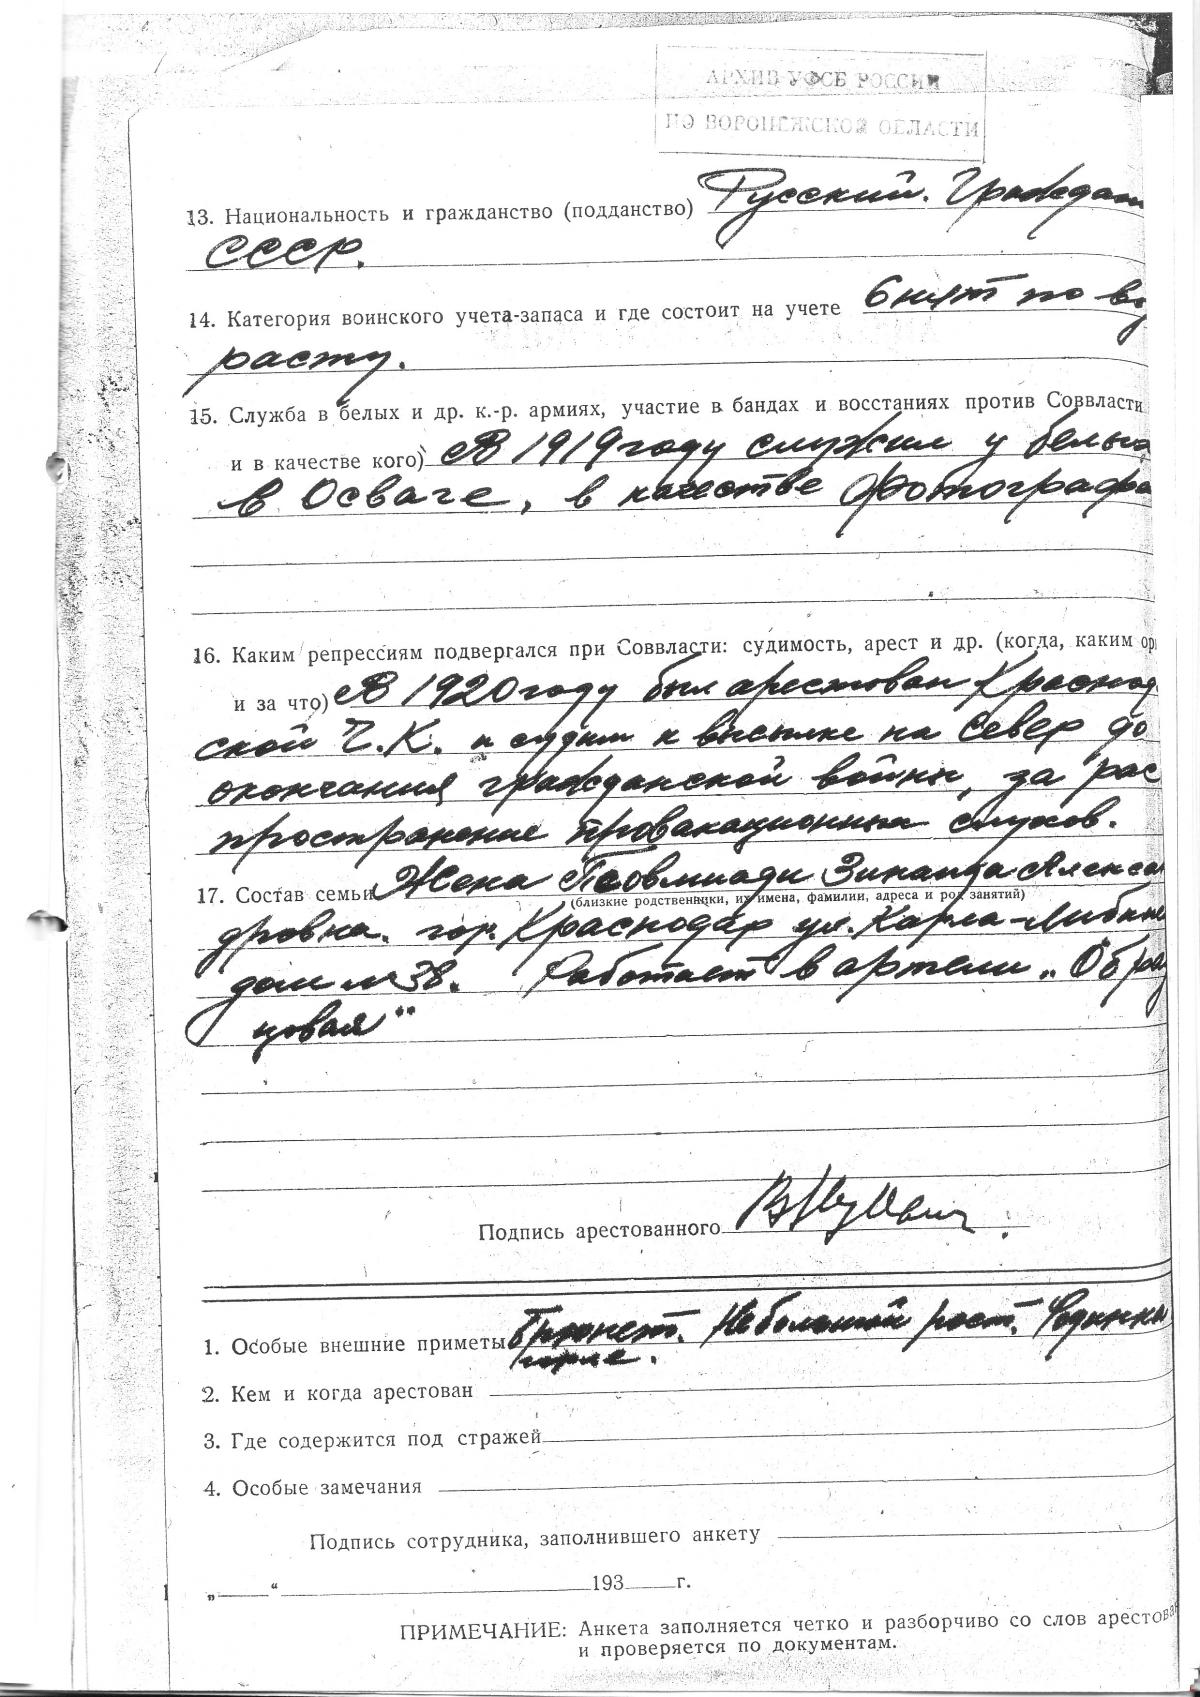 АРХИВ УФСБ РОССИИ
ПО ВОРОНЕЖСКОЙ ОБЛАСТИ
13. Национальность и гражданство (подданство) Русский. Граждан
СССР.
14. Категория воинского учета-запаса и где состоит на учете Снят по воз
расту.
15. Служба в белых и др. к.-р. армиях, участие в бандах и восстаниях против Соввласти
и в качестве кого) В 1919 году служил у белых
в Осваге, в качестве фотографа
16. Каким репрессиям подвергался при Соввласти: судимость, арест и др. (когда, каким ор
и за что) В 1920 году был арестован Краснод
ской Ч.К. и судим к высылке на Север до
окончания гражданской войны, за рас
пространение провакационных слухов.
17. Состав семьи Жена Зинаида Алексан
(близкие родственники, их имена, фамилии, адреса и род занятий)
дровна. гор. Краснодар ул. Карла-Либкне
дом № 38. Работает в артели „Образ
цовая"
Подпись арестованного
1. Особые внешние приметы Брюнет. Небольшой рост. Родинка
горле.
2. Кем и когда арестован
3. Где содержится под стражей
4. Особые замечания
Подпись сотрудника, заполнившего анкету
„ “ 193 г.
ПРИМЕЧАНИЕ: Анкета заполняется четко и разборчиво со слов арестова
и проверяется по документам.